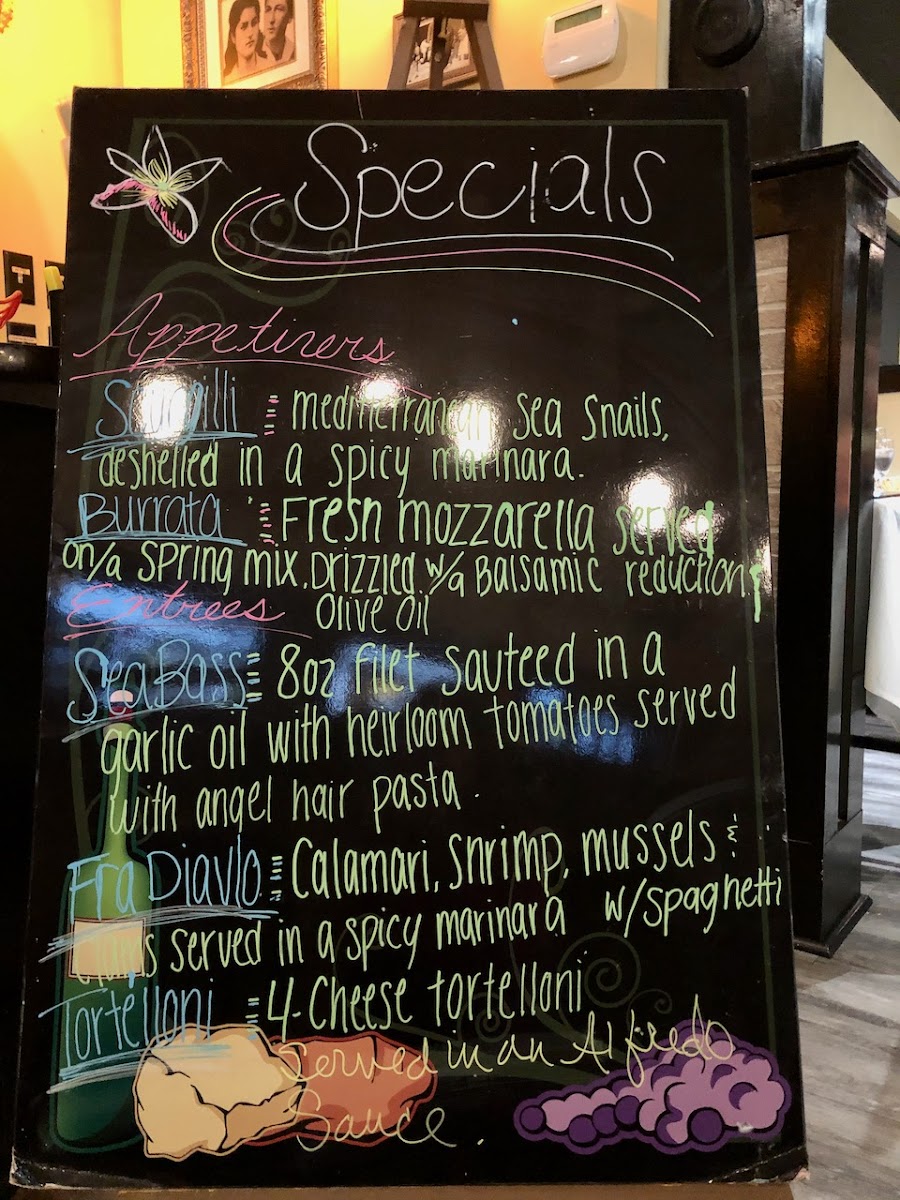 Specials
Appetizers
Scungilli = mediterranean Sea Snails,
deshelled in a spicy marinara.
Burrata = Fresh mozzarella served
on/a spring mix. Drizzled w/a Balsamic reduction &
Olive Oil
Entrees
Sea Bass = 8oz filet sauteed in a
garlic oil with heirloom tomatoes served
with angel hair pasta.
Fra Diavlo = Calamari, Shrimp, mussels &
clams served in a spicy marinara w/spaghetti
Tortelloni = 4-Cheese tortelloni
Served in an Alfredo
Sauce.